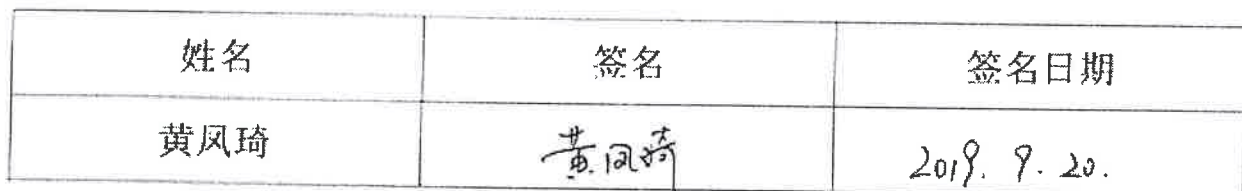 姓名 签名 签名日期
黄凤琦 黄凤琦 2019. 9. 20.